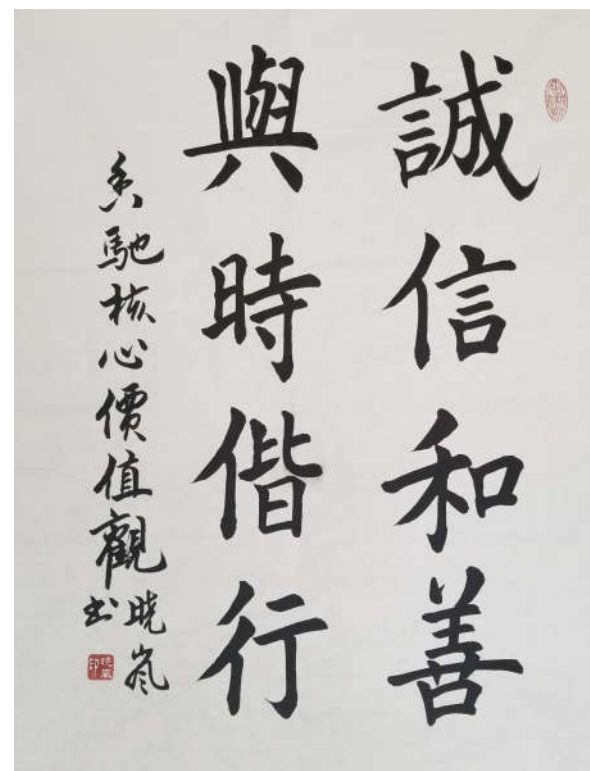 誠信和善
與時偕行
香馳核心價值觀
曉嵐
书